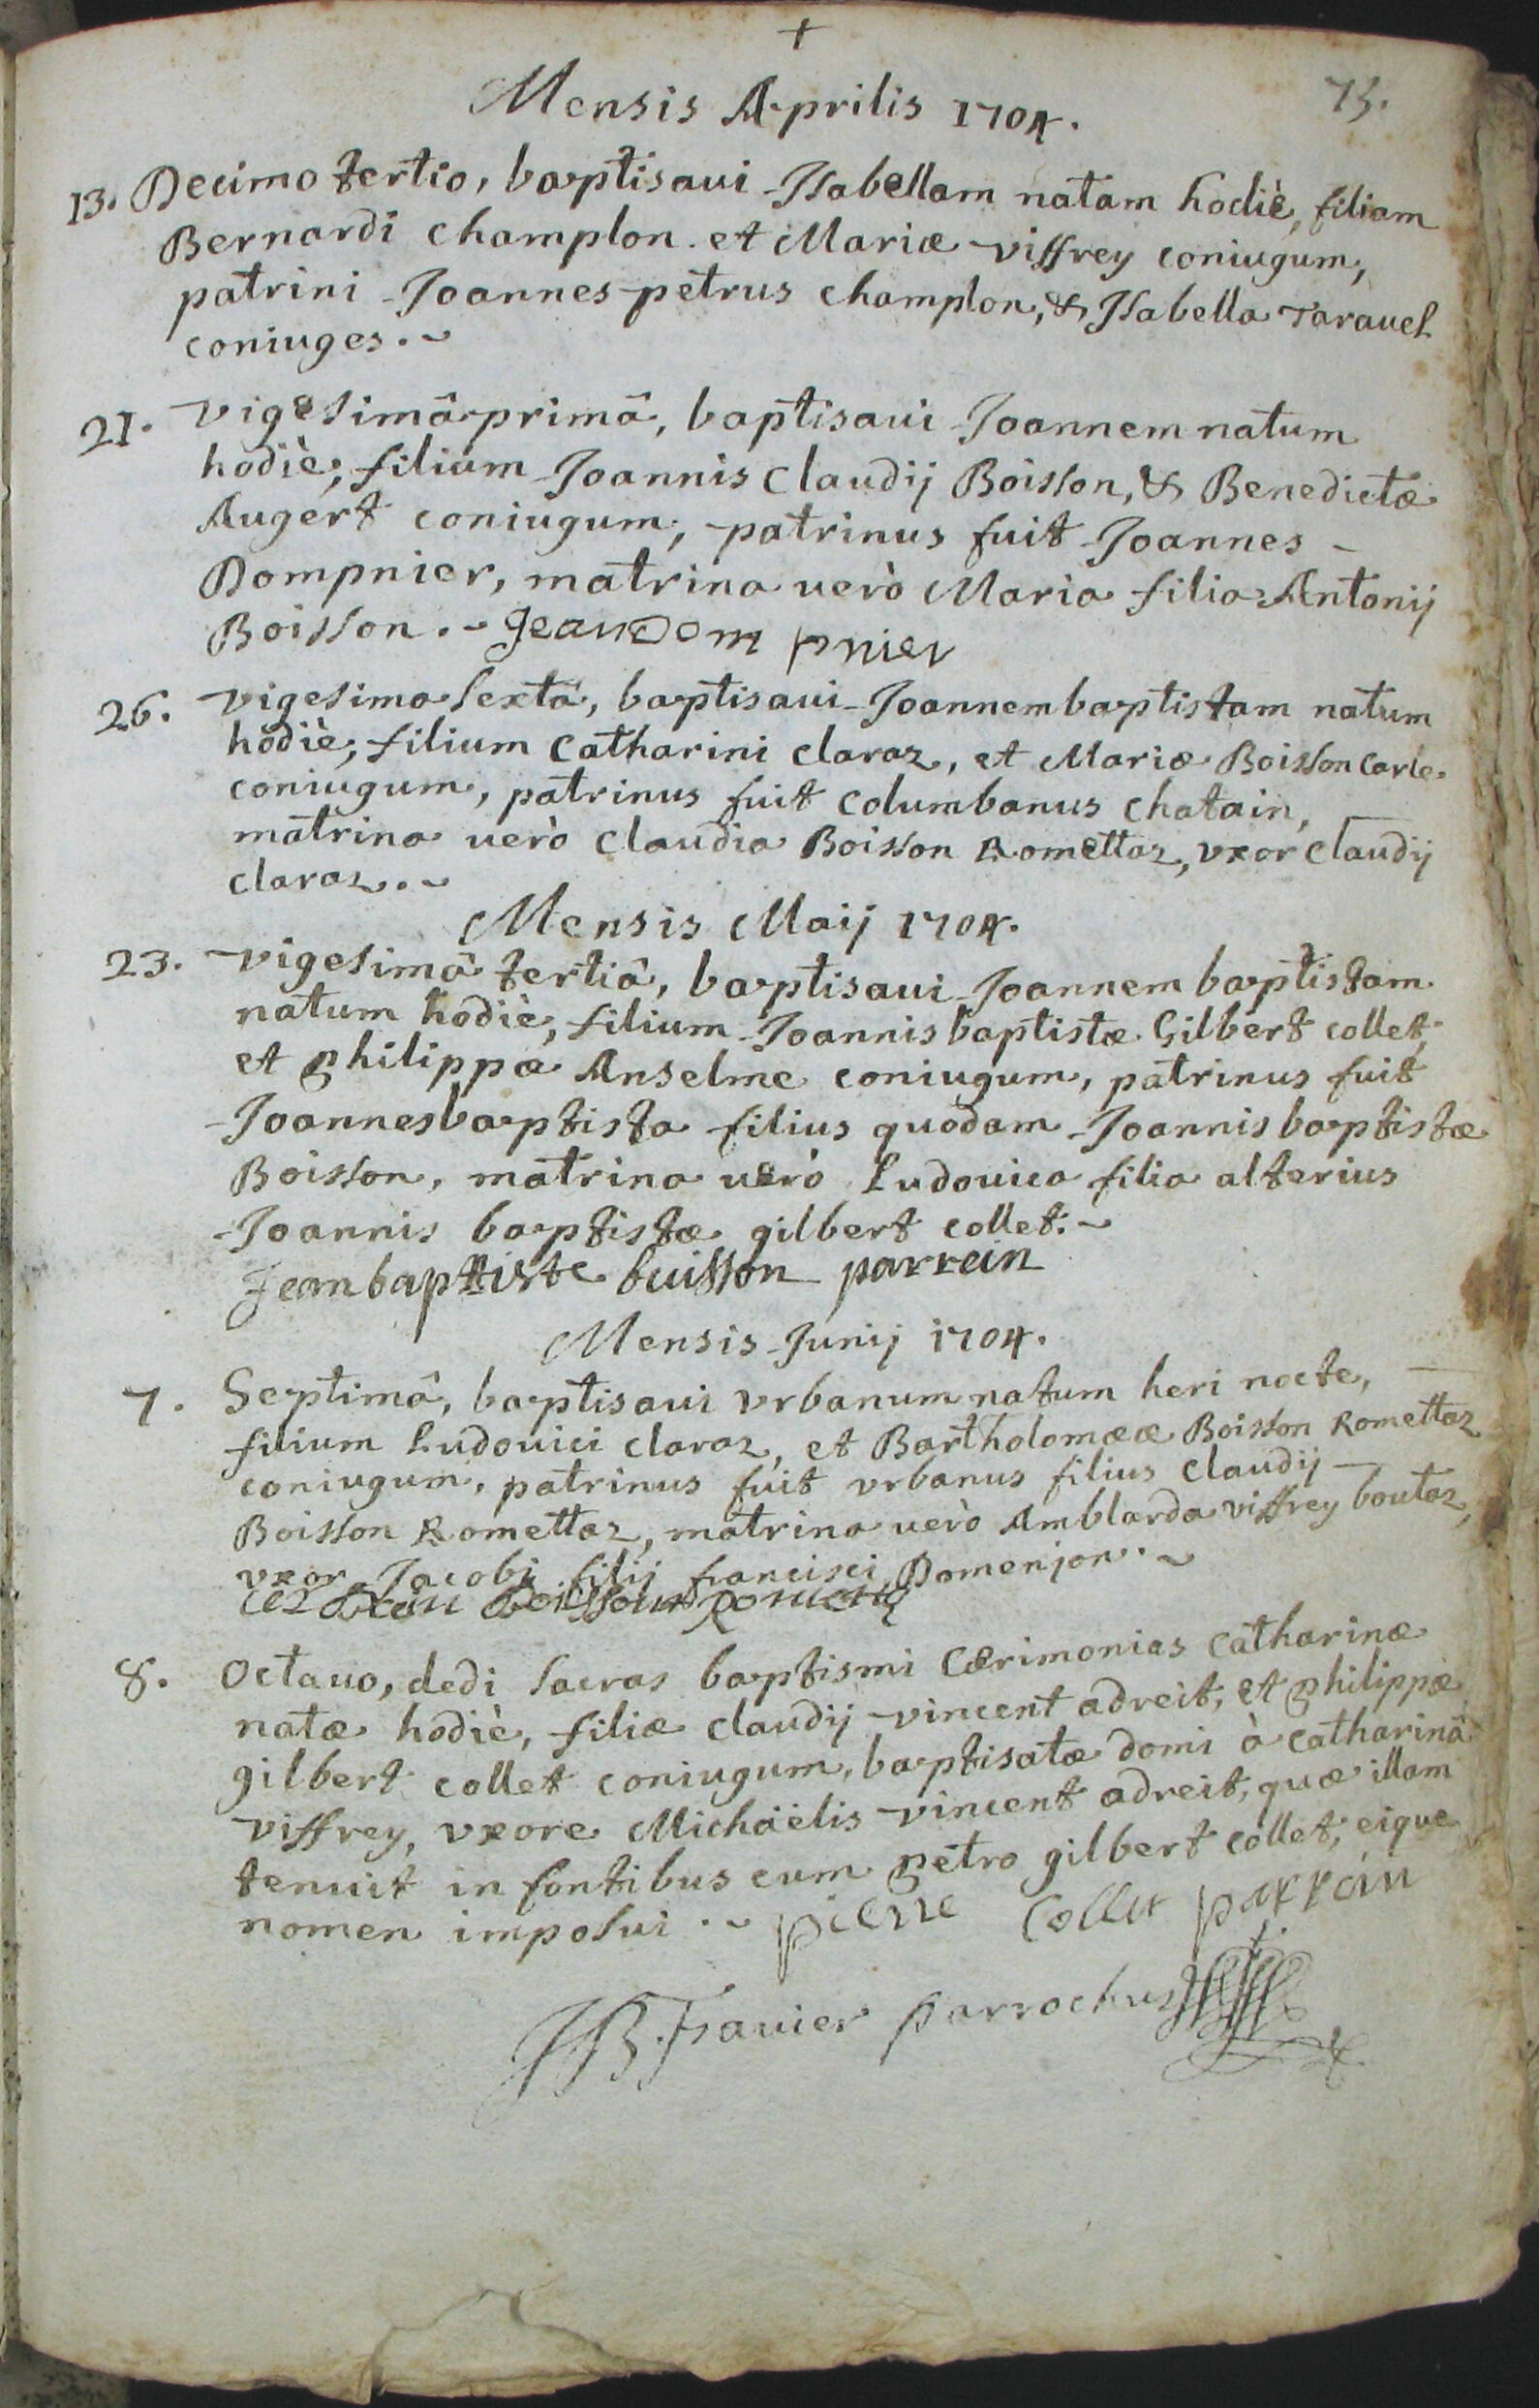 +
Mensis Aprilis 1704.
73.
13. Decimo tertio, baptisaui Isabellam natam hodiè, filiam
Bernardi champlon. et Mariæ viffrey coniugum,
patrini Joannes petrus champlon, & Isabella Tarauel
coniuges.~
21. vigesimâ primâ, baptisaui Joannem natum
hodiè, filium Joannis Claudij Boisson, & Benedictæ
Augert coniugum, patrinus fuit Joannes -
Dompnier, matrina uerò Maria filia Antonij
Boisson.~ Jean Dom pnier
26. vigesima sexta, baptisaui Joannem baptistam natum
hodiè, filium Catharini claraz, et Mariæ Boisson Carle
coniugum, patrinus fuit Columbanus chatain,
matrina uerò Claudia Boisson Romettaz, vxor Claudij
claraz.~
Mensis Maij 1704.
23. vigesimâ tertiâ, baptisaui Joannem baptistam
natum hodiè, filium Joannis baptistæ Gilbert collet,
et philippæ Anselme coniugum, patrinus fuit
Joannes baptista filius quodam Joannis baptistæ
Boisson, matrina uerò Ludouica filia alterius
Joannis baptistæ gilbert collet.~
Jean baptiste buisson parrein
Mensis Junij 1704.
7. Septimâ, baptisaui vrbanum natum heri nocte,
filium Ludouici claraz, et Bartholomææ Boisson Romettaz
coniugum, patrinus fuit vrbanus filius Claudij -
Boisson Romettaz, matrina uerò Amblarda viffrey boutaz,
vxor Jacobi filij francisci Domenjon.~
Boisson
8. Octauo, dedi sacras baptismi Cærimonias Catharinæ
natæ hodiè, filiæ claudij vincent adreit, et philippæ
gilbert collet coniugum, baptisatæ domi à catharinâ
viffrey, vxore Michaëlis vincent adreit, quæ illam
tenuit in fontibus cum petro gilbert collet, eique
nomen imposui.~ pierre Collet parrein
JB. Frauier parrochus